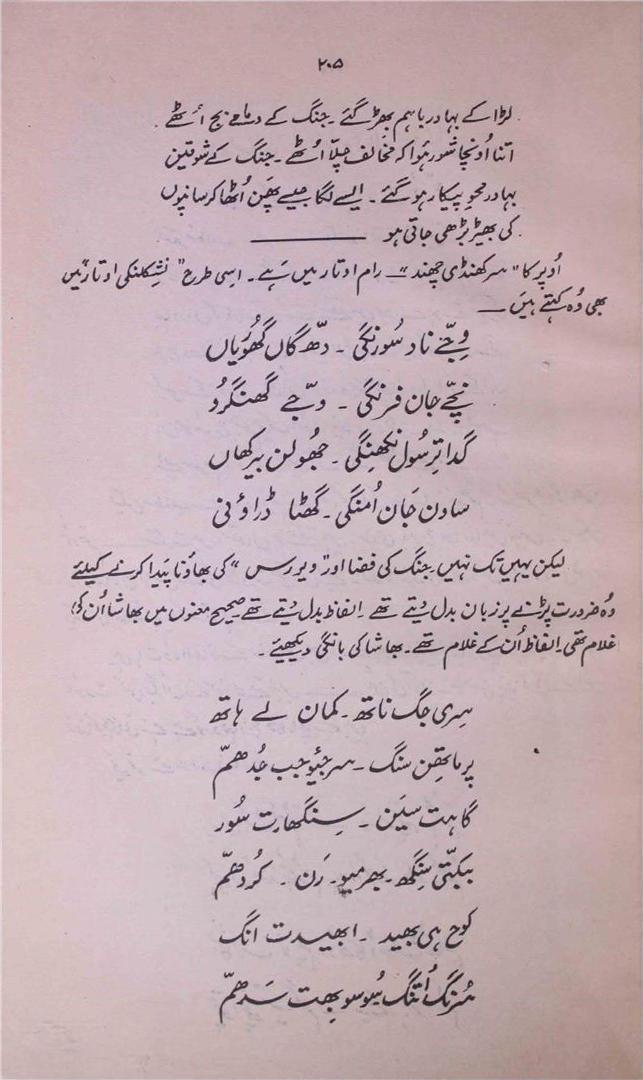 ۲۰۵
لڑاکے بہادر باہم بھڑ گئے ۔ جنگ کے دمامے بج اُٹھے
اتنا اُونچا شور ہوا کہ مخالف چِلّا اُٹھے ۔ جنگ کے شوقین
بہادر محوِ پیکار ہو گئے ۔ ایسے لگا جیسے پھَن اُٹھا کر سانپوں
کی بھیڑ بڑھی جاتی ہو
اُوپر کا "سرکھنڈی چھند" ــ رام اوتار میں ہَے ۔ اسی طرح "نشکلنکی اوتار" میں
بھی وُہ کہتے ہیَں ــ
وجّے ناد سُورنگی ۔ دھّگاں گھُورِیاں
نچّے جان فرنگی ۔ وجّے گھنگرُو
گدا تِرسُول نکھنِگی ۔ جھُولن بیرکھاں
ساون جَان اُمنگی ۔ گھٹا ڈراؤنی
لیکن یہیں تک نہیں ۔ جنگ کی فضا اور "ویر رس" کی بھاؤنا پَیدا کرنے کیلئے
وُہ ضرورت پڑنے پر زبان بدل دیتے تھے ۔ الفاظ بدل دیتے تھے صحیح معنوں میں بھاشا اُن کی
غلام تھی ۔ الفاظ اُن کے غلام تھے ۔ بھاشا کی بانگی دیکھئے ۔
سِری جگ ناتھ ۔ کمان لے ہاتھ
پرماتھِن سنگ ۔ سرجیَو جب جُدھمّ
گاہت سیَن ۔ سِنگھارت سُور
ببکتّی سِنگھ ۔ بھرمیو ۔ رَن ۔ کُرُدھمّ
کوح ہی بھید ۔ ابھیدت انگ
سُرنگ اُتنگ سُو سوبھت سَدھمّ